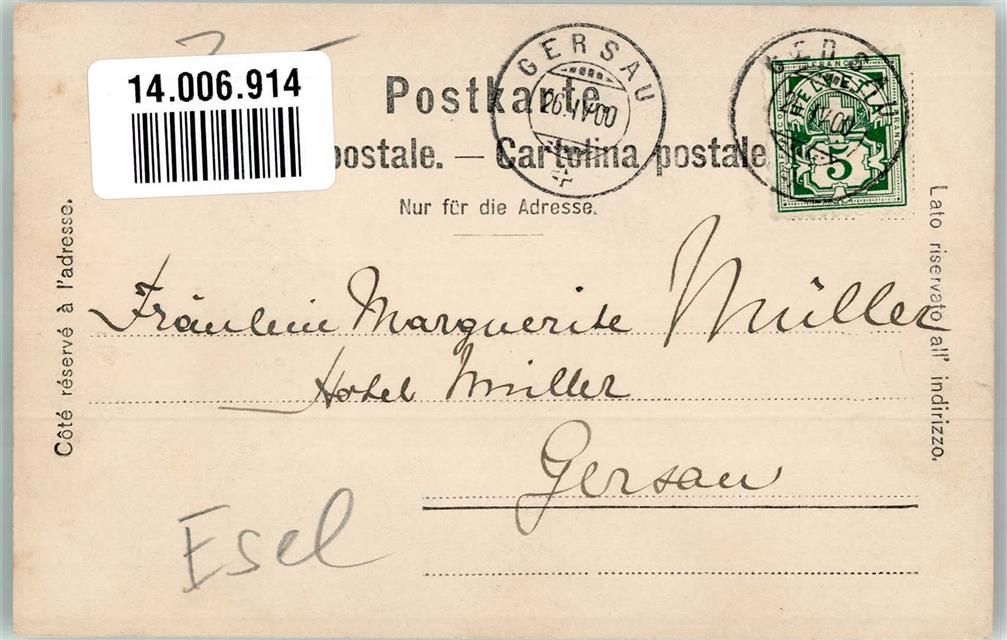 14.006.914
Postkarte.
postale. — Cartolina postale
Nur für die Adresse.
GERSAU
26.IV.00
HELVETIA
FRANCO
5
Côté réservé à l'adresse.
Lato riservato all' indirizzo.
Fräulein Marguerite Müller
Hotel Müller
Gersau
Esel